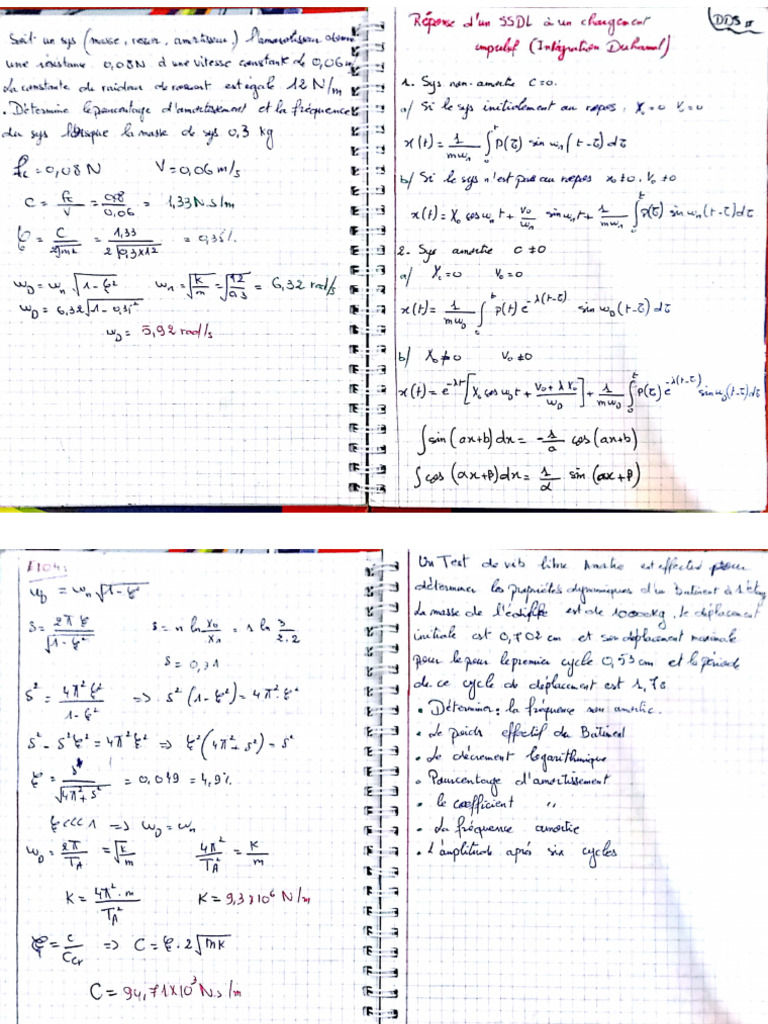 Soit un sys (masse, ressor, amortisseur) l'amortisseur
une résistance 0,08N d'une vitesse constante de 0,06 m
La constante de raideur de ressort est égale 12 N/m
. Détermine le pourcentage d'amortissement et la fréquence
du sys lorsque la masse de sys 0,3 kg
fc = 0,08 N V = 0,06 m/s
C = fc/V = 0,8/0,06 = 1,33 N.s/m
= 1,33 / 2√0,3x12 = 0,35%
ω_D = ω_n √1-ξ² ω_n = √k/m = √12/0,3 = 6,32 rad/s
ω_D = 6,32 √1-0,35²
ω_D = 5,92 rad/s
DDS II
Réponse d'un SSDL à un chargement
impulsif (Intégration Duhamel)
1. Sys non-amortie C=0.
a/ Si le sys initialement au repos, X₀=0 V₀=0
x(t) = 1/mω_n ∫₀ᵗ P(τ) sin ω_n (t-τ) dτ
b/ Si le sys n'est pas au repos x₀≠0, V₀≠0
x(t) = X₀ cos ω_n t + V₀/ω_n sin ω_n t + 1/mω_n ∫₀ᵗ P(τ) sin ω_n (t-τ) dτ
2. Sys amortie C≠0
a/ X₀=0 V₀=0
x(t) = 1/mω_D ∫₀ᵗ P(t) e^-λ(t-τ) sin ω_D (t-τ) dτ
b/ X₀≠0 V₀≠0
x(t) = e^-λt [X₀ cos ω_D t + V₀+λX₀/ω_D] + 1/mω_D ∫₀ᵗ P(τ) e^-λ(t-τ) sin ω_D (t-τ) dτ
∫ sin (ax+b) dx = -1/a cos (ax+b)
∫ cos (αx+β) dx = 1/α sin (αx+β)
= ω_n √1-ξ²
δ = 2πξ/√1-ξ² δ = n ln x₀/x₁ = 1 ln
δ = 0,31
δ² = 4π²ξ²/1-ξ² => δ² (1-ξ²) = 4π²ξ²
δ² - δ²ξ² = 4π²ξ² => ξ² (4π²+δ²) = δ²
ξ = δ/√4π²+δ² = 0,049 = 4,9%
ξ <<< 1 => ω_D = ω_n
ω_D = 2π/T_A = √k/m 4π²/T_A² = K/m
K = 4π².m/T_A² K = 9,3x10⁶ N/m
ξ = c/C_cr => C = ξ.2√mk
C = 94,71x10³ N.s/m
Un Test de vib libre Amortie est effectué pour
déterminer les propriétés dynamiques d'un Batiment à 1 étag
la masse de l'édifice est de kg, le déplacement
initiale est 0,702 cm et son déplacement maximale
pour le pour le premier cycle 0,53 cm et la période
de ce cycle de déplacement est 1,7s
• Déterminer: la fréquence non amortie.
• Le poids effectif du Batiment
• Le décrement logarithmique
• Pourcentage d'amortissement
• le coefficient "
• La fréquence amortie
• L'amplitude après six cycles